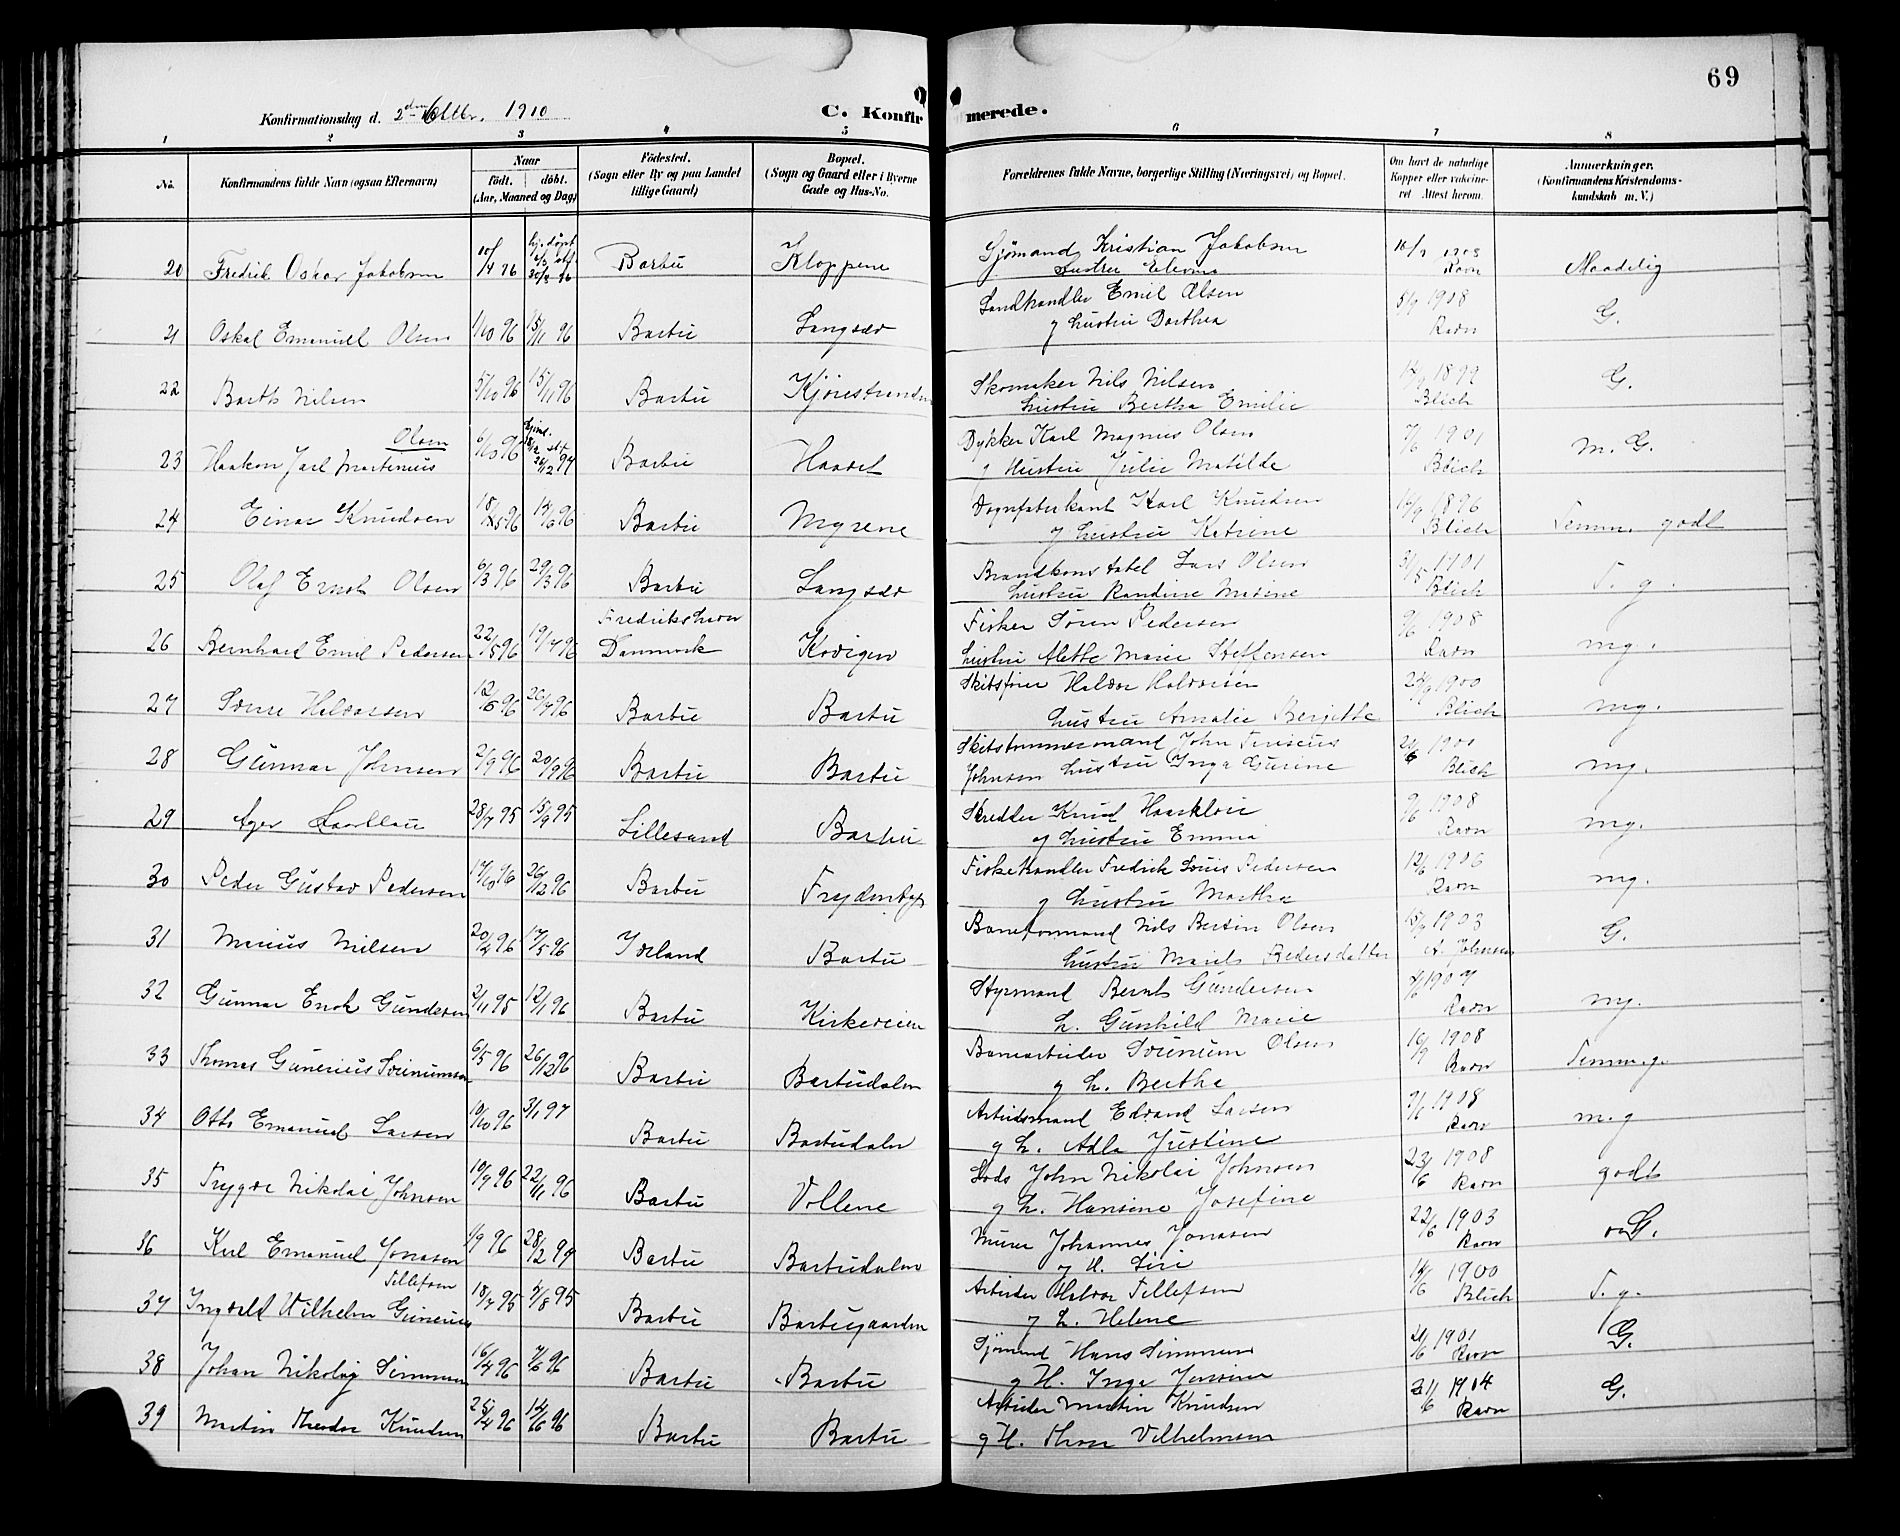 69
Konfirmationsdag d. 2den Oktbr. 1910
C. Konfirmerede.
1 2 3 4 5 6 7 8
No.
Konfirmandens fulde Navn (ogsaa Efternavn)
Naar
födt. döbt.
(Aar, Maaned og Dag)
Födested.
(Sogn eller By og paa Landet
tillige Gaard)
Bopæl.
(Sogn og Gaard eller i Byerne
Gade og Hus-No.
Forældrenes fulde Navne, borgerlige Stilling (Næringsvei) og Bopæl.
Om havt de naturlige
Kopper eller vakcine-
ret Attest herom.
Anmærkninger.
(Konfirmandens Kristendoms-
kundskab m. V.)
20 Fredrik Oskar Jakobsen 10/4 96 Barbu Kloppene
Sjömand Kristian Jakobsen
Ravn Maadelig
21 Oskal Emanuel Olsen 1/10 96 15/11 96 Barbu Langsæv
Landhandler Emil Olsen
g hustru Dorthea
5/9 1908 Ravn G.
22 Barth Nilsen 5/10 96 15/11 96 Barbu
Skomaker Nils Nilsen
hustru Bertha Emilie
1899 Blich G.
23 Haakon Jarl Martinius Olsen 6/10 96 Barbu
Dykker Karl Magnus Olsen
g Hustru Julie Matilde
7/6 1901 Blich m. G.
24 Einar Knudsen 14/6 96 Barbu Myrene
Karl Knudsen
g hustru Katrine
14/9 1896 Blich Temm. godt
25 Olaf Ernst Olsen 6/3 96 29/3 96 Barbu Langsæv
Brandkonstabel Lars Olsen
hustru Randine Marine
31/5 1901 Blich T. g.
26 Bernhard Emil Pedersen 22/5 96 19/7 96 Fredrikshavn
Danmark
Fisker Sören Pedersen
hustru Alette Marie Steffensen
9/6 1908 Ravn mg.
27 Halvorsen 26/7 96 Barbu Barbu
Skibsförer Halvor Halvorsen
hustru Amalie Bergitte
1900 Blich mg.
28 Gunnar Johnsen 2/9 96 20/9 96 Barbu Barbu
Skibstømmermand John
Johnsen hustru Inga Gurine
1900 Blich mg.
29 28/7 95 15/9 95 Lillesand Barbu
Skredder Knud
og hustru Emma
9/6 1908 Ravn mg.
30 Peder Gustav Pedersen 26/12 96 Barbu
Fiskehandler Fredrik Louis Pedersen
g hustru Martha
12/6 1906 Ravn mg.
31 Marius Nilsen 20/4 96 17/5 96 Barbu
Baneformand Nils Bertin Olsen
hustru Pedersdatter
1903 A. Johnsen G.
32 Gunnar Enok Gundersen 2/11 95 12/1 96 Barbu Kirkeveien
Styrmand Bernt Gundersen
h. Gunhild Marie
1907 Ravn mg.
33 Thomas Gunerius 6/5 96 26/12 96 Barbu Barbudalen
Banearbeider Olsen
g h. Bertha
16/9 1908 Ravn Temm. g.
34 Otto Emanuel Larsen 10/10 96 3/1 97 Barbu Barbudalen
Arbeidsmand Edvard Larsen
g h. Adla Justine
9/6 1908 Ravn m. g
35 Trygve Nikolai Johnsen 10/9 96 22/11 96 Barbu Vollene
Lods John Nikolai Johnsen
g h. Hansine Josefine
23/6 1908 Ravn godt
36 Karl Emanuel Jonasen 1/9 96 28/2 97 Barbu Barbudalen
Murer Johannes Jonasen
g H. Siri
22/6 1903 Ravn
37 Ingvald Wilhelm Gunerius Tellefsen 18/7 95 4/8 95 Barbu Barbugaarden
Arbeider Halvor Tellefsen
g h. Helene
14/6 1900 Blich T. g.
38 Johan Nikolay 16/4 96 7/6 96 Barbu Barbu
Sjömand Hans
g H. Inga
21/6 1901 Ravn G.
39 Martin Theodor Knudsen 25/4 96 14/6 96 Barbu Barbu
Arbeider Martin Knudsen
g H. Vilhelmsen
21/6 1904 Ravn G.